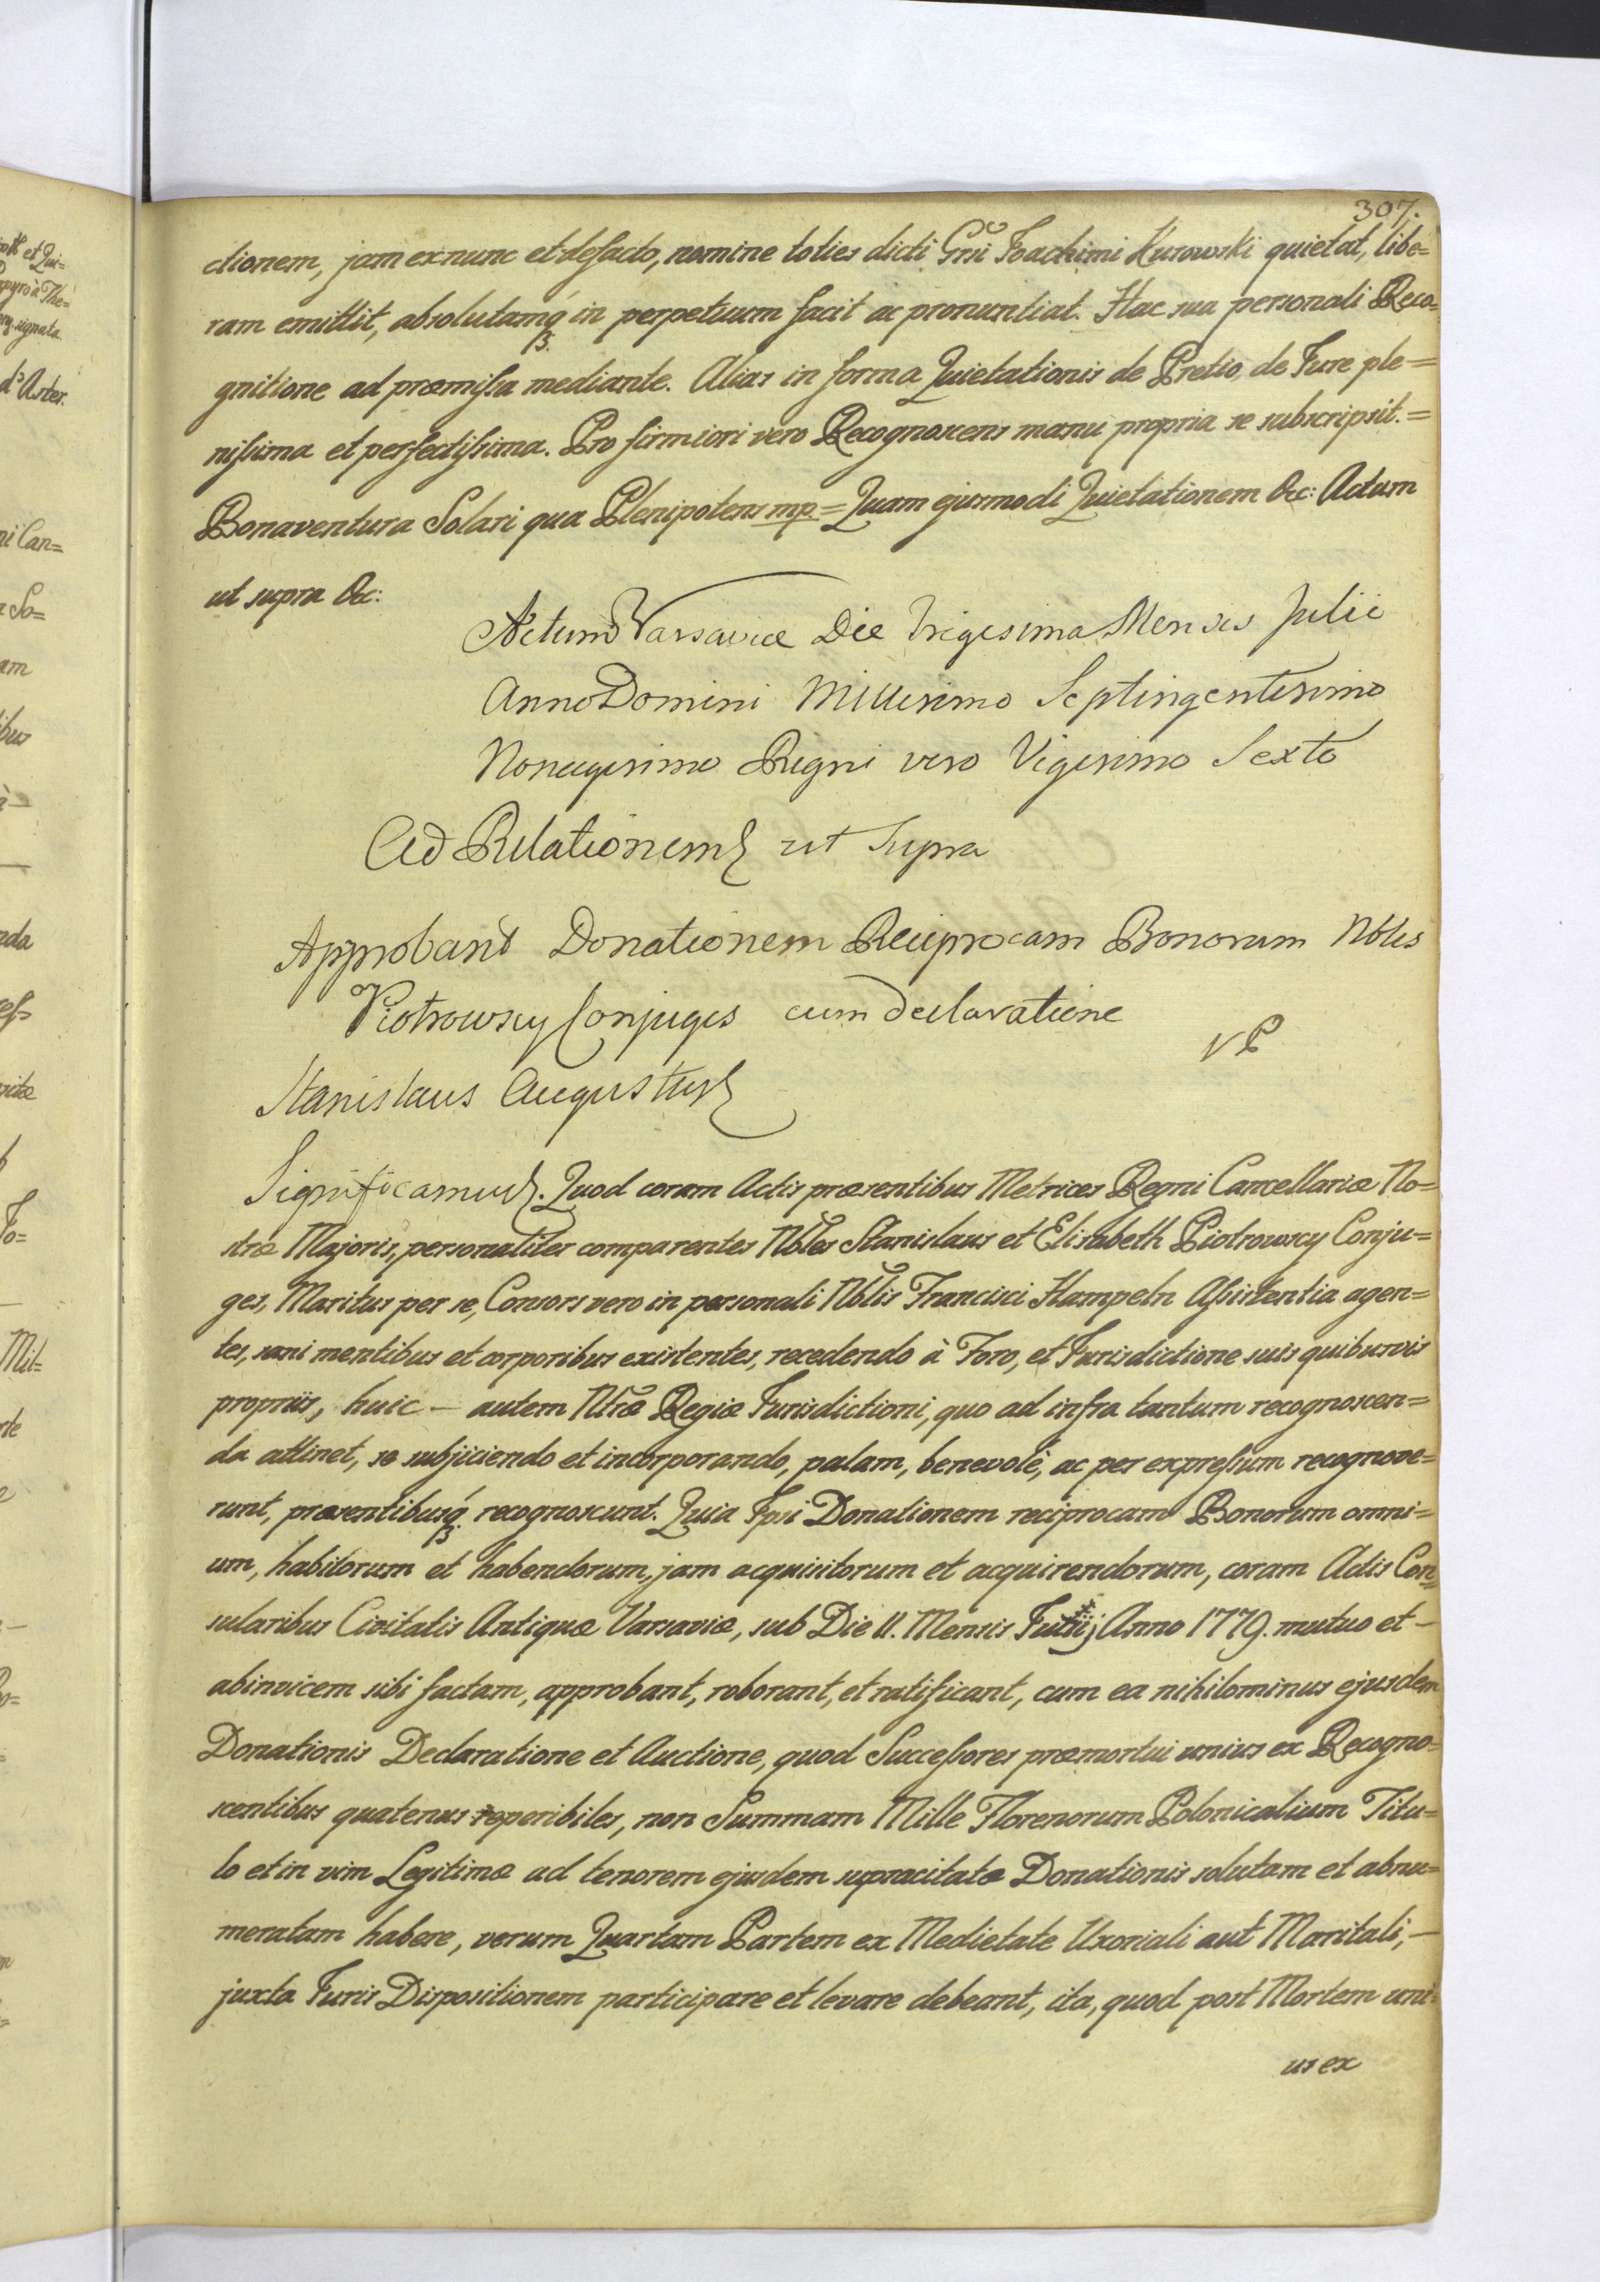 307.
ctionem, jam exnunc et defacto, nomine toties dicti Grsi Joachimi Kurowski quietat, libe=
ram emittit, absolutamq́ in perpetuum facit ac pronuntiat. Hac sua personali Reco=
gnitione ad præmißa mediante. Alias in forma Quietationis de Pretio, de Jure ple=
nißima et perfectißima. Pro firmiori vero Recognoscens manu propria se subscripsit.=
Bonaventura Solari qua Plenipotens mp= Quam ejusmodi Quietationem &c: Actum
ut supra &c:
Actum Varsaviæ Die Trigesima Mensis Julii
Anno Domini Millesimo Septingentesimo
Nonagesimo Regni vero Vigesimo Sexto
Ad Relationem ut supra
Approbant Donationem Reciprocam Bonorum Nbles
Piotrowscy Conjuges cum declaratione
VP
Stanislaus Augustus
Significamus. Quod coram Actis præsentibus Metrices Regni Cancellariæ No=
stræ Majoris, personaliter comparentes Nbles Stanislaus et Elisabeth Piotrowscy Conju=
ges, Maritus per se, Consors vero in personali Nblis Francisci Hampeln Aßistentia agen=
tes, sani mentibus et corporibus existentes, recedendo à Foro, et Jurisdictione suis quibusvis
propriis, huic — autem Ntræ Regiæ Jurisdictioni, quo ad infra tantum recognoscen=
da attinet, se subjiciendo et incorporando, palam, benevolè, ac per expreßum recognove=
runt, præsentibusq́ recognoscunt. Quia Ipsi Donationem reciprocam Bonorum omni=
um, habitorum et habendorum, jam acquisitorum et acquirendorum, coram Actis Con=
sularibus Civitatis Antiquæ Varsaviæ, sub Die 11. Mensis Anno 1779. mutuo et —
abinvicem sibi factam, approbant, roborant, et ratificant, cum ea nihilominus ejusdem
Donationis Declaratione et Auctione, quod Succeßores præmortui unius ex Recogno=
scentibus quatenus reperibiles, non Summam Mille Florenorum Polonicalium Titu=
lo et in vim Legitimæ ad tenorem ejusdem supracitatæ Donationis solutam et abnu=
meratam habere, verum Quartam Partem ex Medietate Uxoriali aut Maritali, —
juxta Juris Dispositionem participare et levare debeant, ita, quod post Mortem uni=
us ex